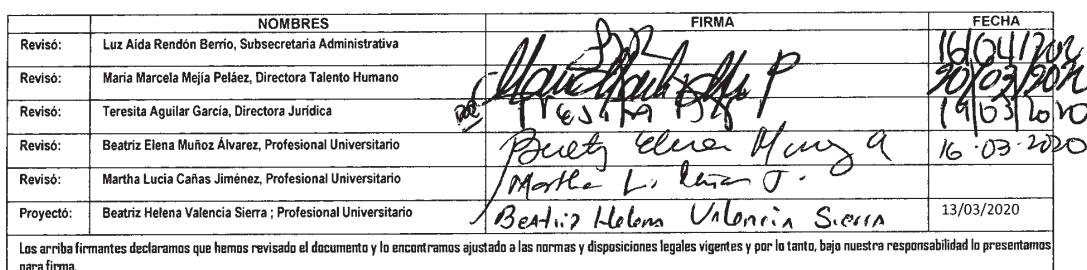 NOMBRES FIRMA FECHA
Revisó: Luz Aida Rendón Berrío, Subsecretaria Administrativa 16/04/202
Revisó: María Marcela Mejía Peláez, Directora Talento Humano P 20/03/202
Revisó: Teresita Aguilar García, Directora Jurídica 19/03/2020
Revisó: Beatriz Elena Muñoz Álvarez, Profesional Universitario Beatriz Elena Muñoz A 16-03-2020
Revisó: Martha Lucia Cañas Jiménez, Profesional Universitario Martha L. Cañas J.
Proyectó: Beatriz Helena Valencia Sierra ; Profesional Universitario Beatriz Helena Valencia Sierra 13/03/2020
Los arriba firmantes declaramos que hemos revisado el documento y lo encontramos ajustado a las normas y disposiciones legales vigentes y por lo tanto, bajo nuestra responsabilidad lo presentamos
para firma.